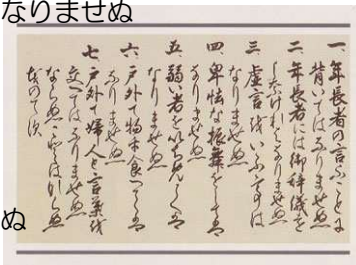 なりませぬ
ぬ
一、年長者の言ふことに
背いてはなりませぬ
二、年長者には御辞儀を
しなければなりませぬ
三、虚言をいふ事は
なりませぬ
四、卑怯な振舞をしては
なりませぬ
五、弱い者をいぢめては
なりませぬ
六、戸外で物を食べては
なりませぬ
七、戸外で婦人と言葉を
交へてはなりませぬ
ならぬことはならぬ
ものです